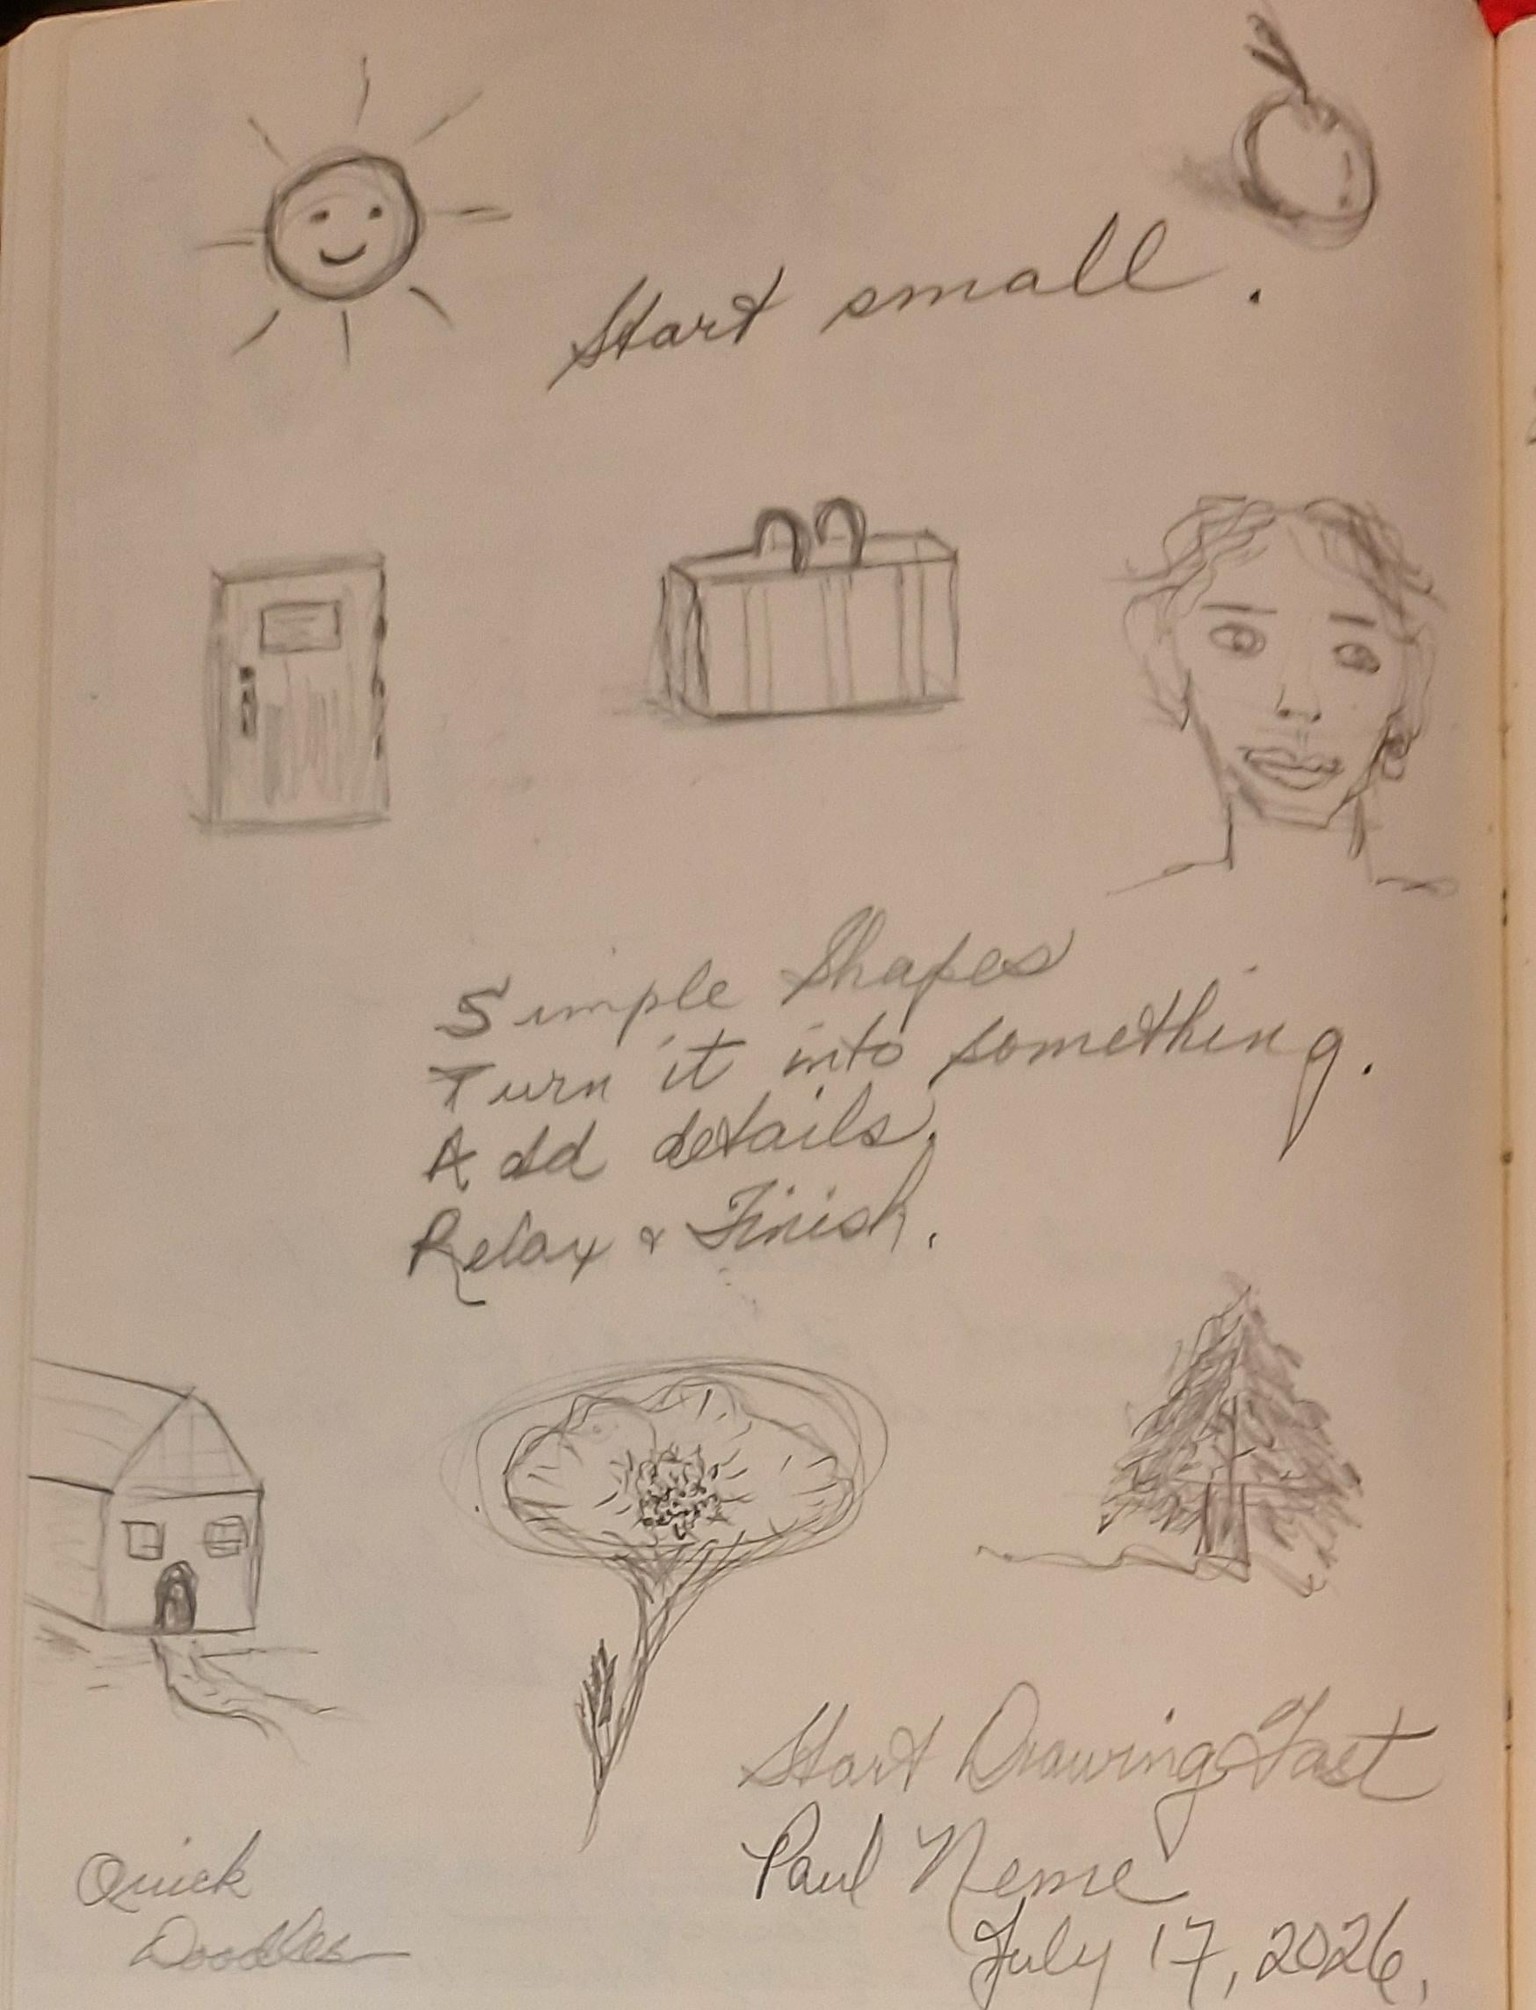 Start small.
Simple Shapes
Turn it into something.
Add details.
Relax & Finish.
Start Drawing Fast
Paul Neme
July 17, 2026.
Quick
Doodles